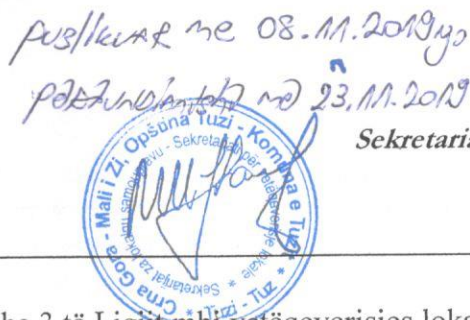 publikuar me 08.11.2019
me 23.11.2019
Sekretaria
Crna Gora - Mali i Zi, Opština Tuzi - Komuna e Tuzit *
Sekretarijat za lokalnu samoupravu - Sekretariati për vetëqeverisje lokale *
Tuzi - Tuz
3 të Ligjit mbi vetëqeverisjes loka